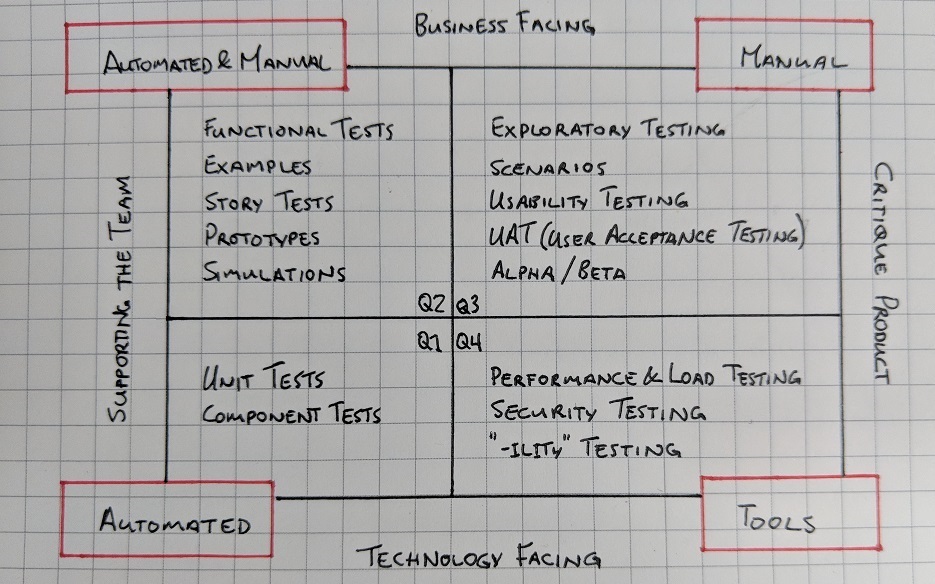 BUSINESS FACING
AUTOMATED & MANUAL
MANUAL
FUNCTIONAL TESTS
EXAMPLES
STORY TESTS
PROTOTYPES
SIMULATIONS
EXPLORATORY TESTING
SCENARIOS
USABILITY TESTING
UAT (USER ACCEPTANCE TESTING)
ALPHA/BETA
SUPPORTING THE TEAM
CRITIQUE PRODUCT
Q2 Q3
Q1 Q4
UNIT TESTS
COMPONENT TESTS
PERFORMANCE & LOAD TESTING
SECURITY TESTING
"-ILITY" TESTING
AUTOMATED
TOOLS
TECHNOLOGY FACING